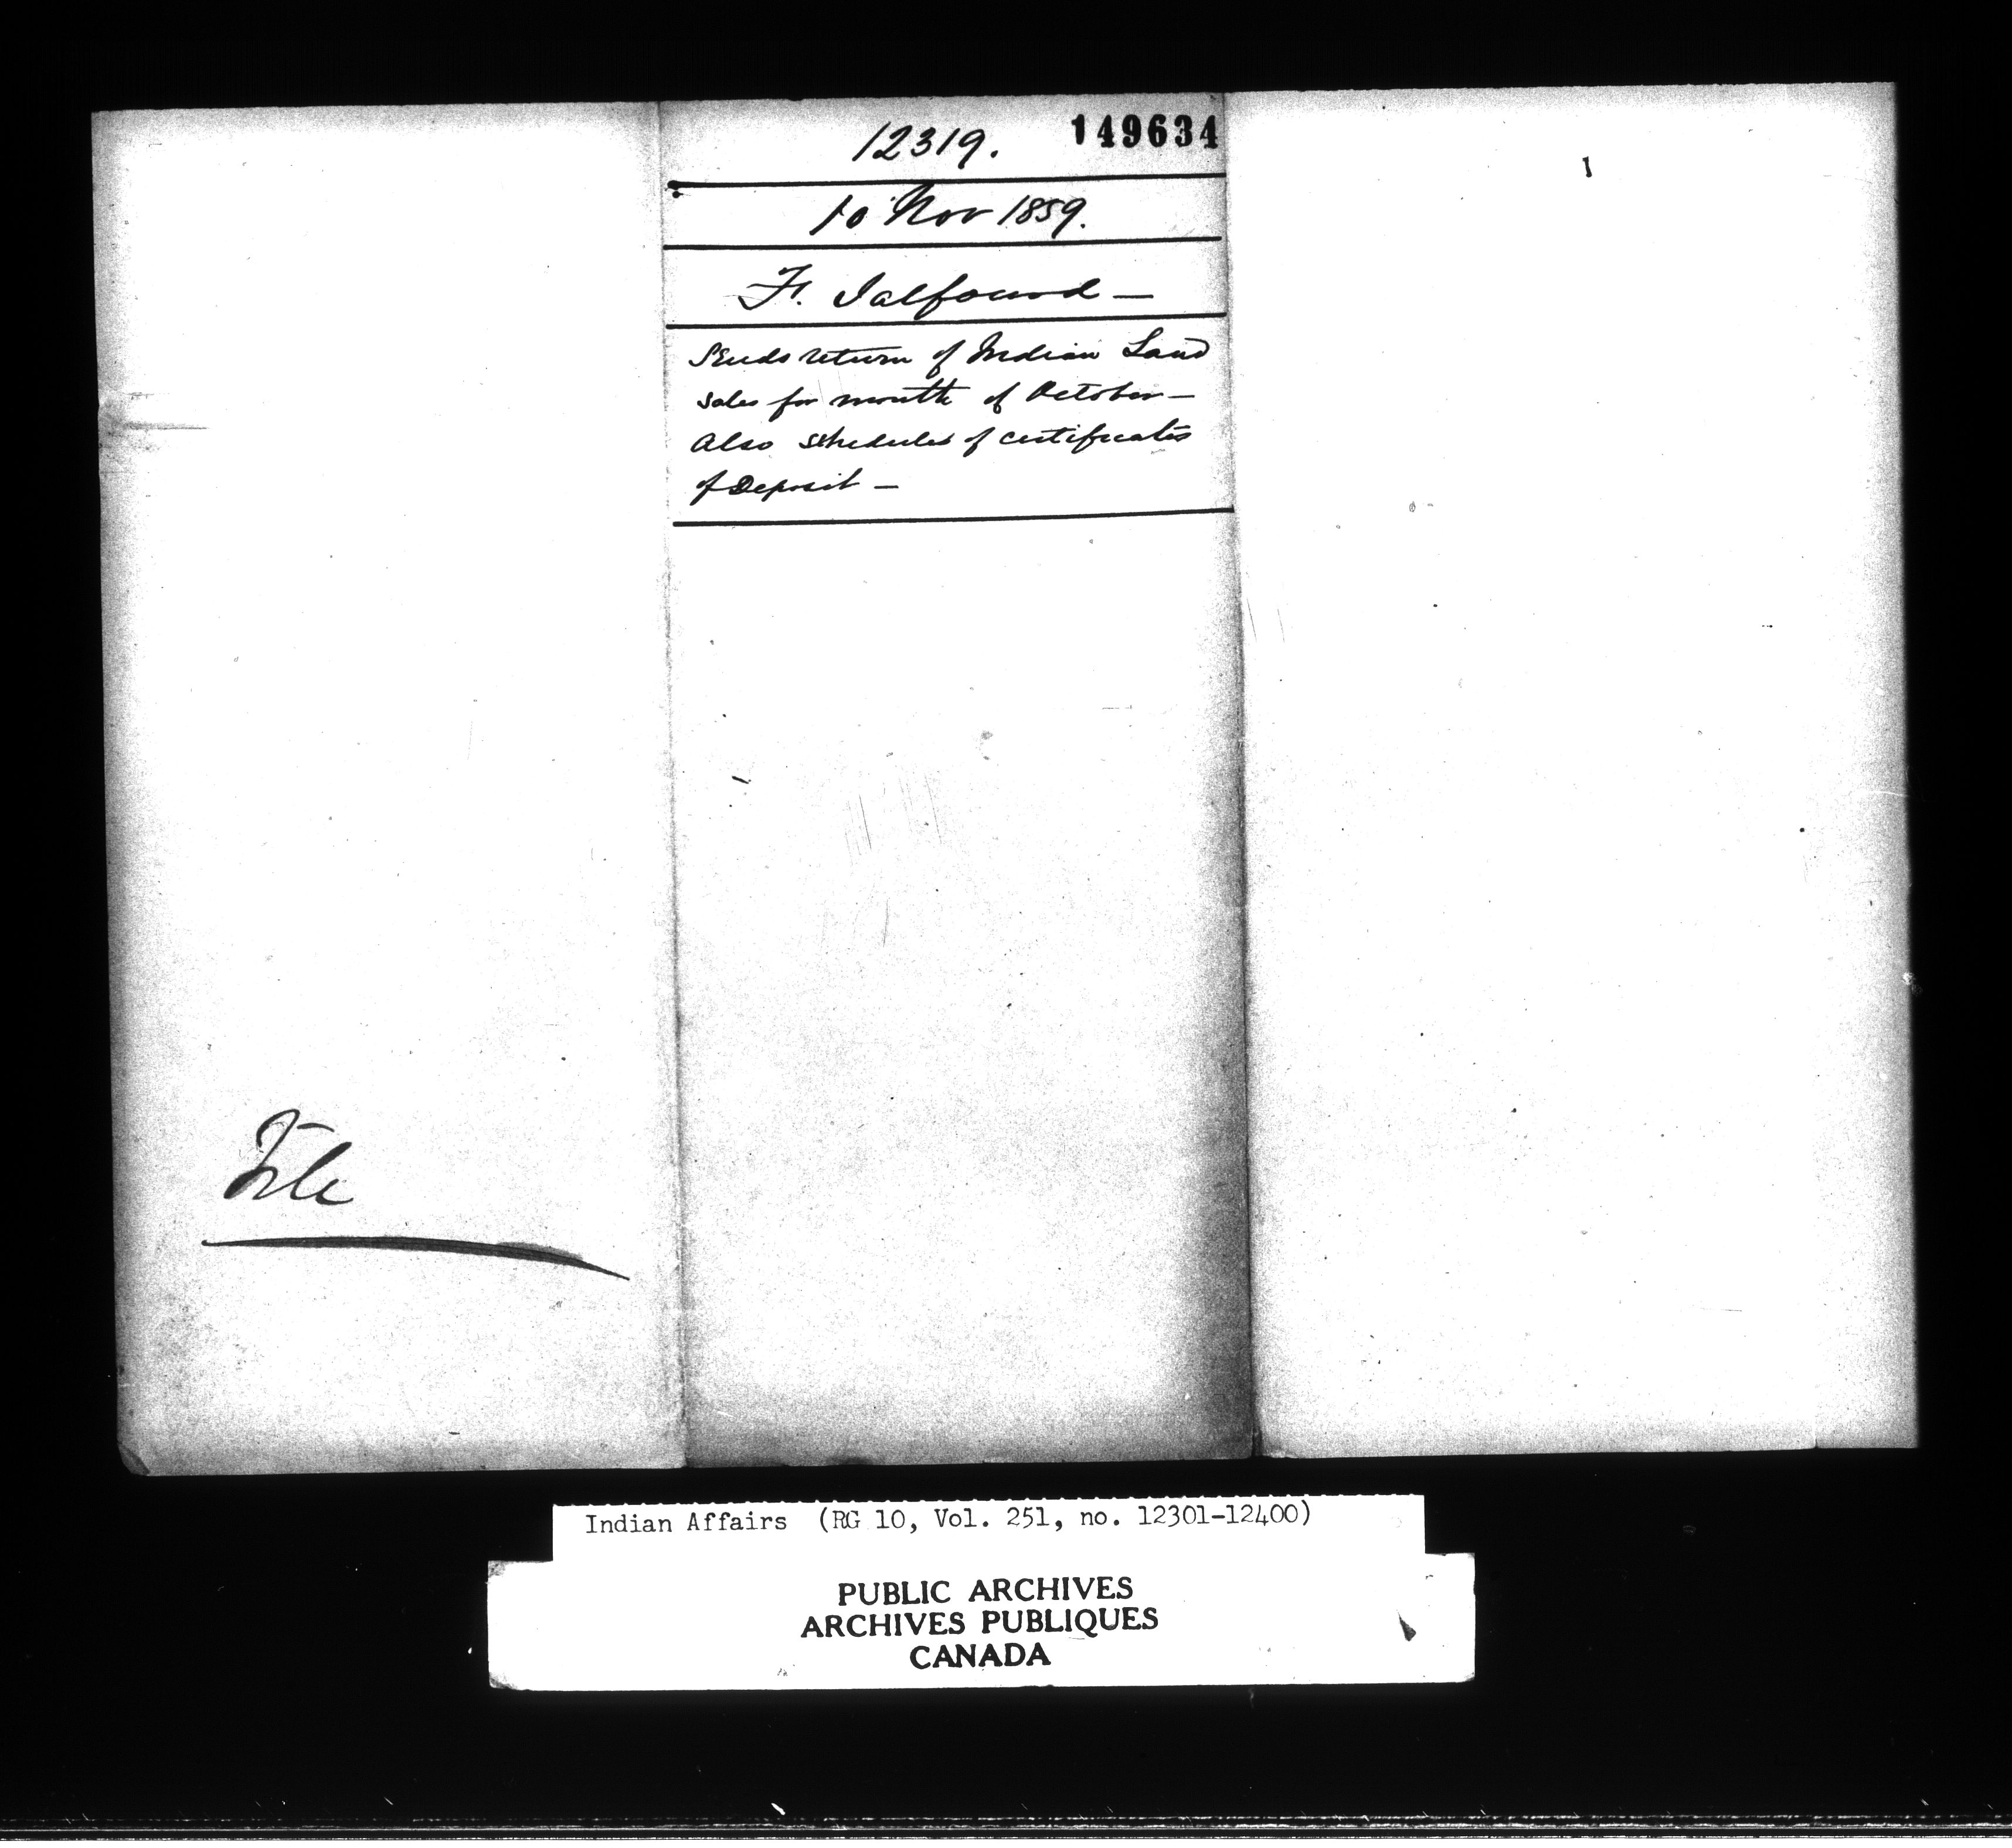 12319. 149634
10 Nov 1859.
F. Talfourd —
Sends return of Indian Land
sales for month of October —
Also schedules of certificates
of Deposit —
File
Indian Affairs (RG 10, Vol. 251, no. 12301-12400)
PUBLIC ARCHIVES
ARCHIVES PUBLIQUES
CANADA